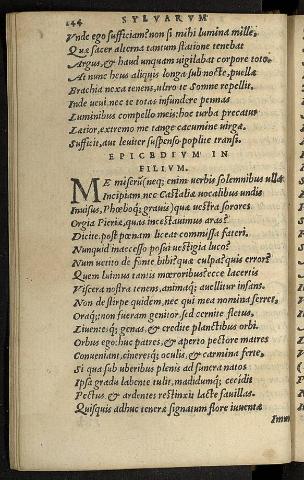 144 SYLVARVM
Vnde ego sufficiam? non si mihi lumina mille,
Quæ sacer alterna tantum statione tenebat
Argus, & haud unquam uigilabat corpore toto.
At nunc heus aliquis longa sub nocte, puellæ
Brachia nexa tenens, ultro te Somne repellit.
Inde ueni nec te totas infundere pennas
Luminibus compello meis: hoc turba precatur
Lætior, extremo me tange cacumine uirgæ.
Sufficit, aut leuiter suspenso poplite transi.
EPICEDIVM IN
FILIVM.
ME miserū (neq; enim uerbis solemnibus ulla
Incipiam nec Castaliæ uocalibus undis
Inuisus, Phœboq; grauis) quæ uestra sorores
Orgia Pieriæ, quas incestauimus aras?
Dicite. post pœnam liceat commissa fateri.
Nunquid inaccesso posui uestigia luco?
Num uetito de fonte bibi? quæ culpa? quis error?
Quem luimus tantis mœroribus? ecce lacertis
Viscera nostra tenens, animaq; auellitur infans.
Non de stirpe quidem, nec qui mea nomina ferret,
Oraq; non fueram genitor, sed cernite fletus,
Liuenteisq; genas, & credite planctibus orbi.
Orbus ego: huc patres, & aperto pectore matres
Conueniant, cineresq; oculis, & carmina ferte,
Si qua sub uberibus plenis ad funera natos
Ipsa gradu labente tulit, madidumq; cecidit
Pectus, & ardentes restinxit lacte fauillas.
Quisquis adhuc teneræ signatum flore iuuentæ